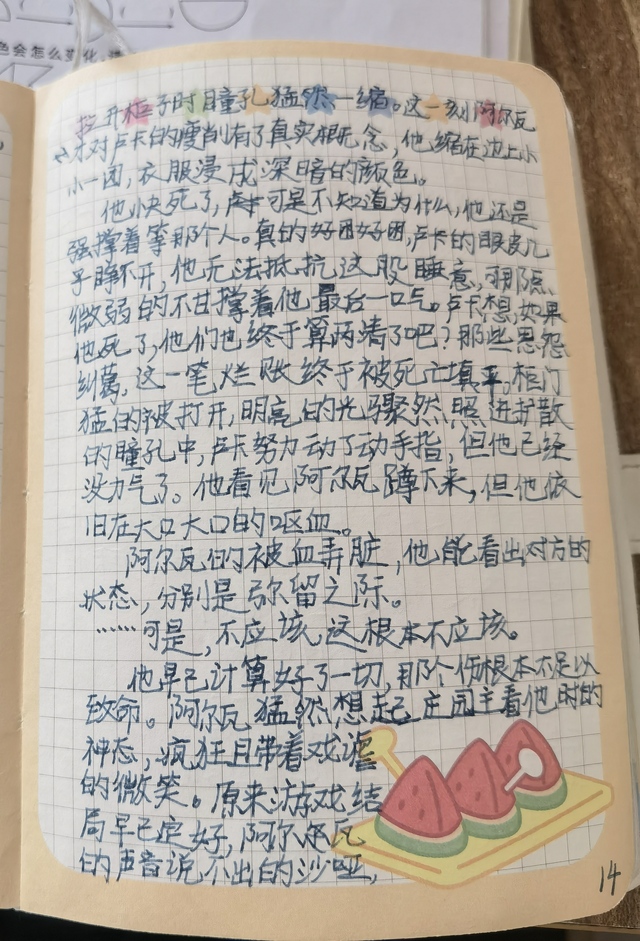 色会怎么变化,
拉开柜子时瞳孔猛然一缩。这一刻阿尔瓦
才对卢卡的瘦削有了真实概念,他缩在边上小
小一团,衣服浸成深暗的颜色。
他快死了,可是不知道为什么,他还是
强撑着等那个人。真的好困好困,卢卡的眼皮几
乎睁不开,他无法抵抗这股睡意,
微弱的不甘撑着他最后一口气。卢卡想,如果
他死了,他们也终于算两清了吧?那些恩怨
纠葛,这一笔烂账终于被死亡填平,柜门
猛的被打开,明亮的光骤然照进扩散
的瞳孔中,卢卡努力动了动手指,但他已经
没力气了。他看见阿尔瓦蹲下来,但他依
旧在大口大口的呕血。
阿尔瓦的被血弄脏,他能看出对方的
状态,分别是弥留之际。
……可是,不应该,这根本不应该。
他早已计算好了一切,那个伤根本不足以
致命。阿尔瓦猛然想起庄园主看他时的
神态,疯狂且带着戏谑
的微笑。原来游戏结
局早已定好,阿尔瓦
的声音说不出的沙哑,
14